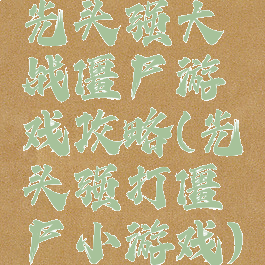 光头强大
战僵尸游
戏攻略(光
头强打僵
尸小游戏)